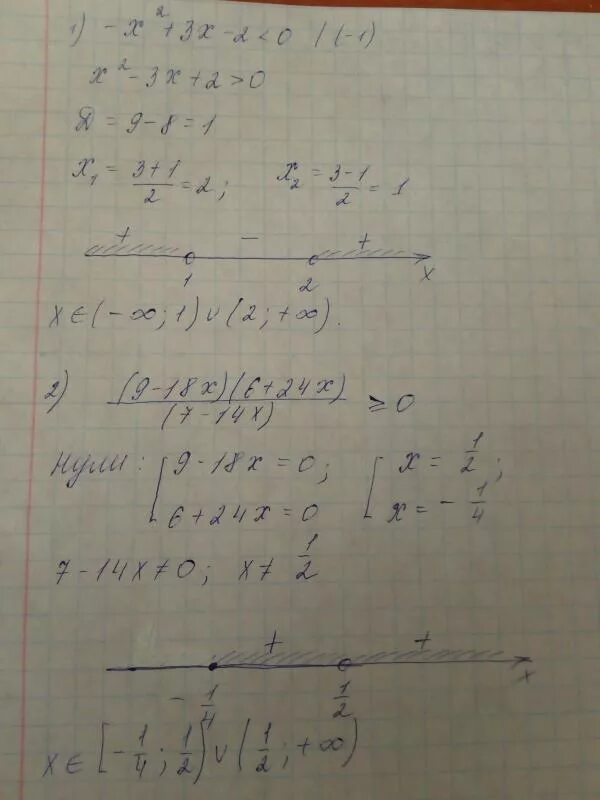 1) -x² + 3x - 2 < 0 | (-1)
x² - 3x + 2 > 0
Д = 9 - 8 = 1
x₁ = (3+1)/2 = 2; x₂ = (3-1)/2 = 1
+ - +
1 2 x
x ∈ (-∞; 1) ∪ (2; +∞).
2) (9-18x)(6+24x)/(7-14x) ≥ 0
нули: [9-18x = 0; [x = 1/2;
6+24x = 0 x = -1/4
7-14x ≠ 0; x ≠ 1/2
+ +
-1/4 1/2 x
x ∈ [-1/4; 1/2) ∪ (1/2; +∞)